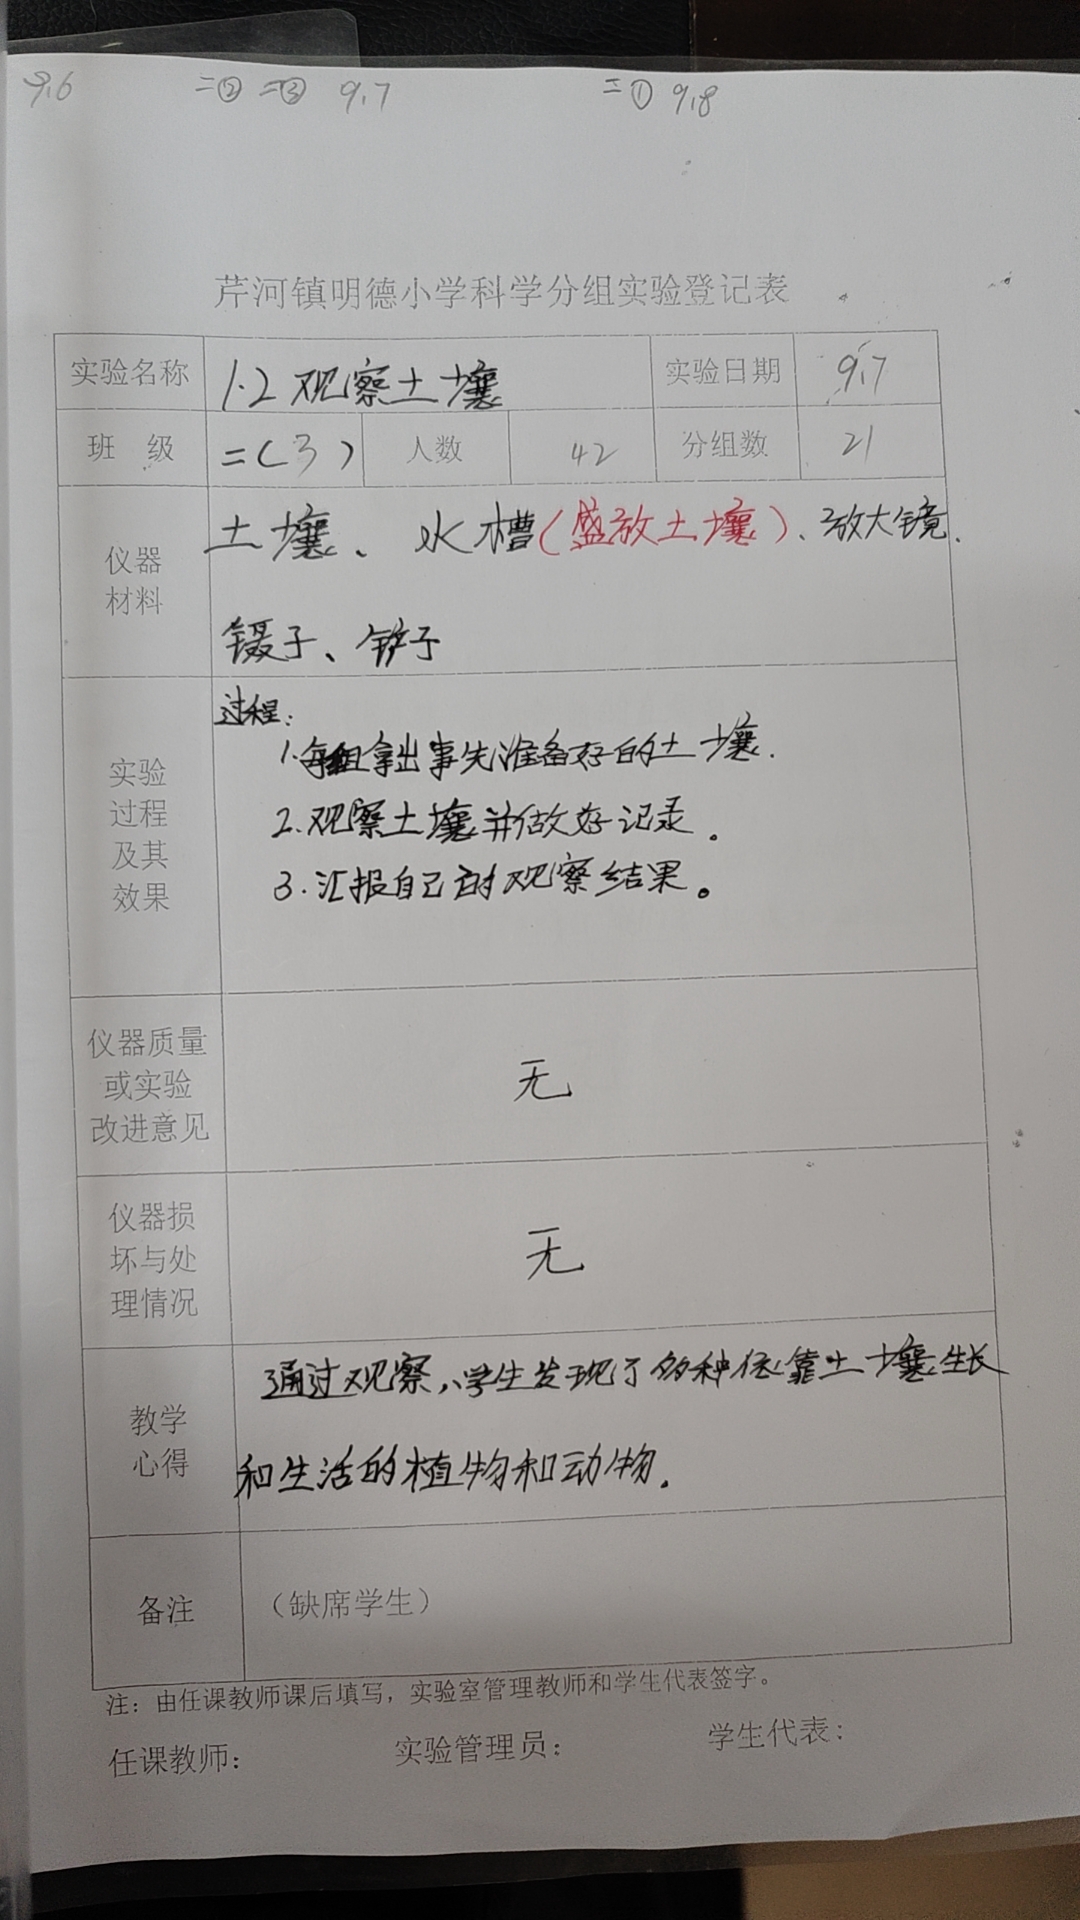 9.6 二② 二③ 9.7 二① 9.8
芹河镇明德小学科学分组实验登记表
实验名称 1.2 观察土壤 实验日期 9.7
班 级 二(3) 人数 42 分组数 21
仪器
材料
土壤、水槽(盛放土壤)、放大镜、
镊子、铲子
实验
过程
及其
效果
过程:
1.每组拿出事先准备好的土壤.
2.观察土壤并做好记录。
3.汇报自己的观察结果。
仪器质量
或实验
改进意见
无
仪器损
坏与处
理情况
无
教学
心得
通过观察,学生发现了多种依靠土壤生长
和生活的植物和动物.
备注 (缺席学生)
注：由任课教师课后填写，实验室管理教师和学生代表签字。
任课教师： 实验管理员： 学生代表：